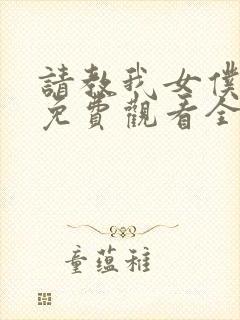 請教我女僕
免費觀看全
童蘊稚